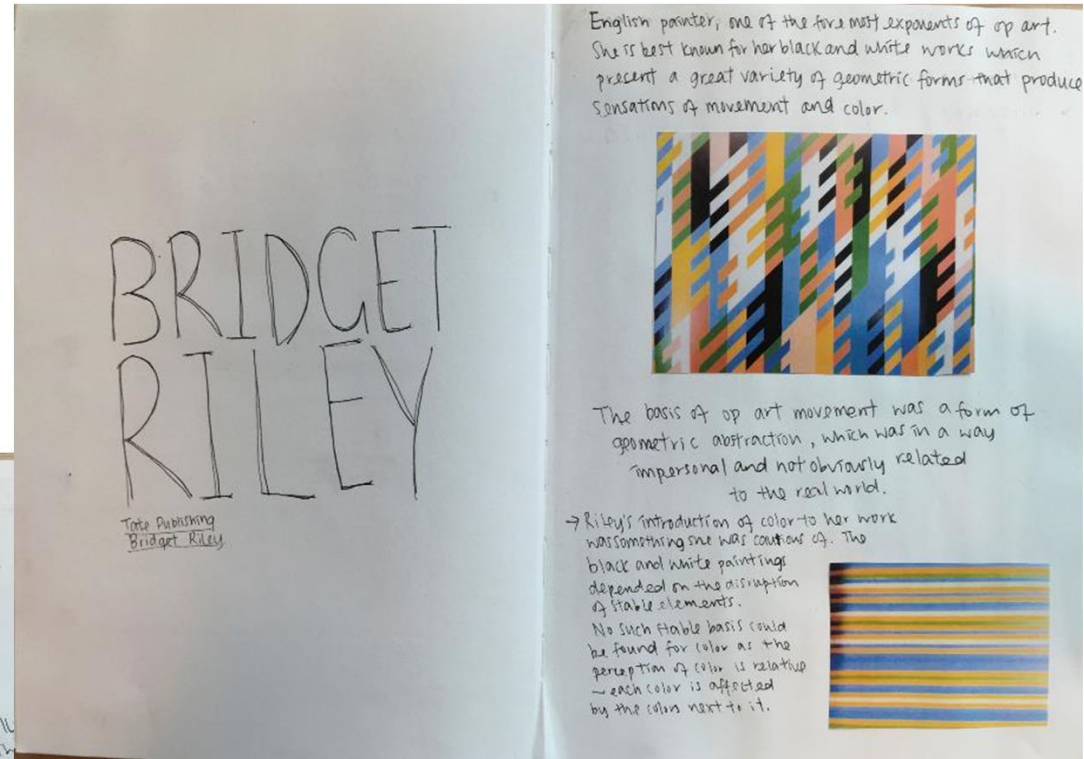 BRIDGET
RILEY
Tate Publishing
Bridget Riley
English painter, one of the foremost exponents of op art.
She is best known for her black and white works which
present a great variety of geometric forms that produce
sensations of movement and color.
The basis of op art movement was a form of
geometric abstraction, which was in a way
impersonal and not obviously related
to the real world.
→ Riley's introduction of color to her work
was something she was cautious of. The
black and white paintings
depended on the disruption
of stable elements.
No such stable basis could
be found for color as the
perception of color is relative
– each color is affected
by the colors next to it.